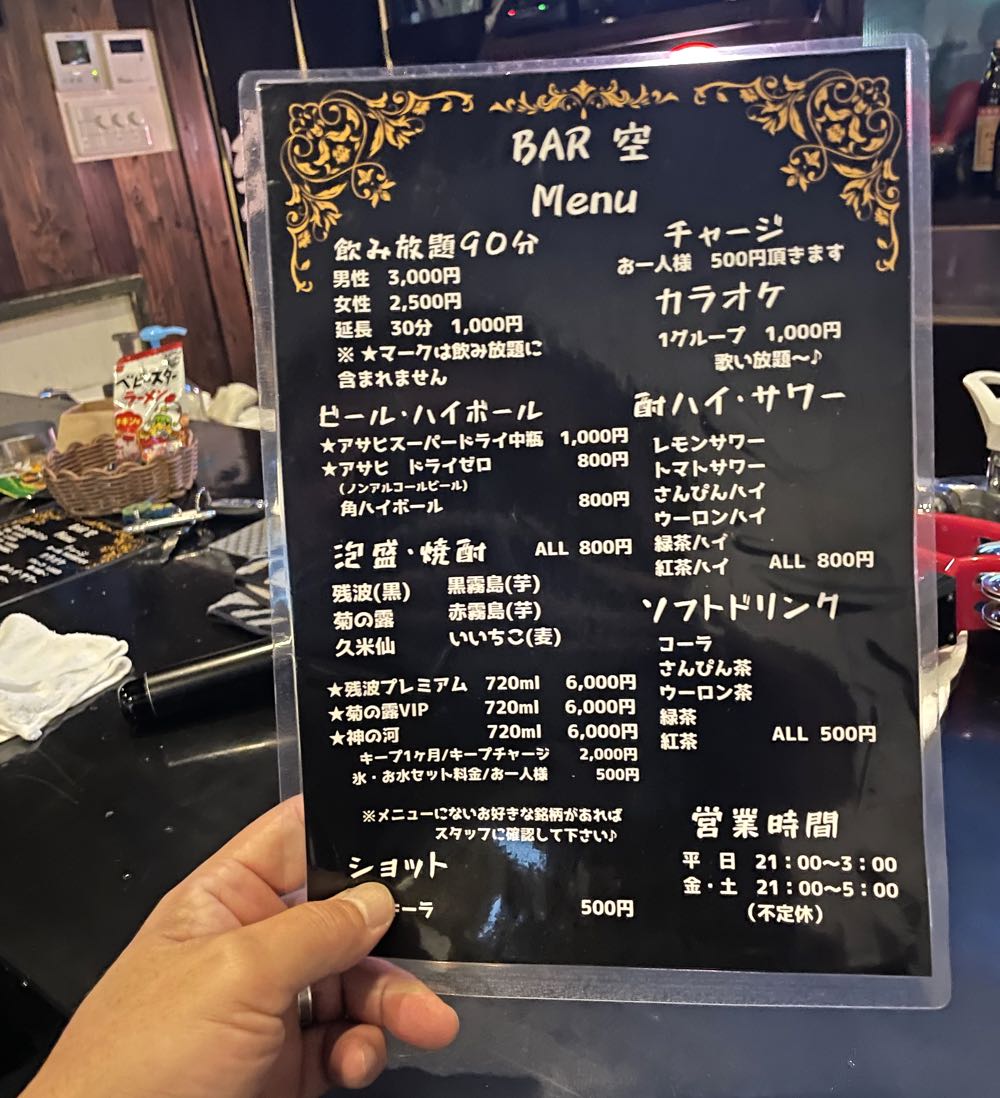 BAR 空
Menu
飲み放題90分
男性 3,000円
女性 2,500円
延長 30分 1,000円
※ ★マークは飲み放題に
含まれません
ビール・ハイボール
★アサヒスーパードライ中瓶 1,000円
★アサヒ ドライゼロ 800円
(ノンアルコールビール)
角ハイボール 800円
泡盛・焼酎 ALL 800円
残波(黒) 黒霧島(芋)
菊の露 赤霧島(芋)
久米仙 いいちこ(麦)
★残波プレミアム 720ml 6,000円
★菊の露VIP 720ml 6,000円
★神の河 720ml 6,000円
キープ1ヶ月/キープチャージ 2,000円
氷・お水セット料金/お一人様 500円
※メニューにないお好きな銘柄があれば
スタッフに確認して下さい♪
ショット
キーラ 500円
チャージ
お一人様 500円頂きます
カラオケ
1グループ 1,000円
歌い放題〜♪
酎ハイ・サワー
レモンサワー
トマトサワー
さんぴんハイ
ウーロンハイ
緑茶ハイ
紅茶ハイ ALL 800円
ソフトドリンク
コーラ
さんぴん茶
ウーロン茶
緑茶
紅茶 ALL 500円
営業時間
平 日 21：00〜3：00
金・土 21：00〜5：00
(不定休)
ベビースター
ラーメン
チキン